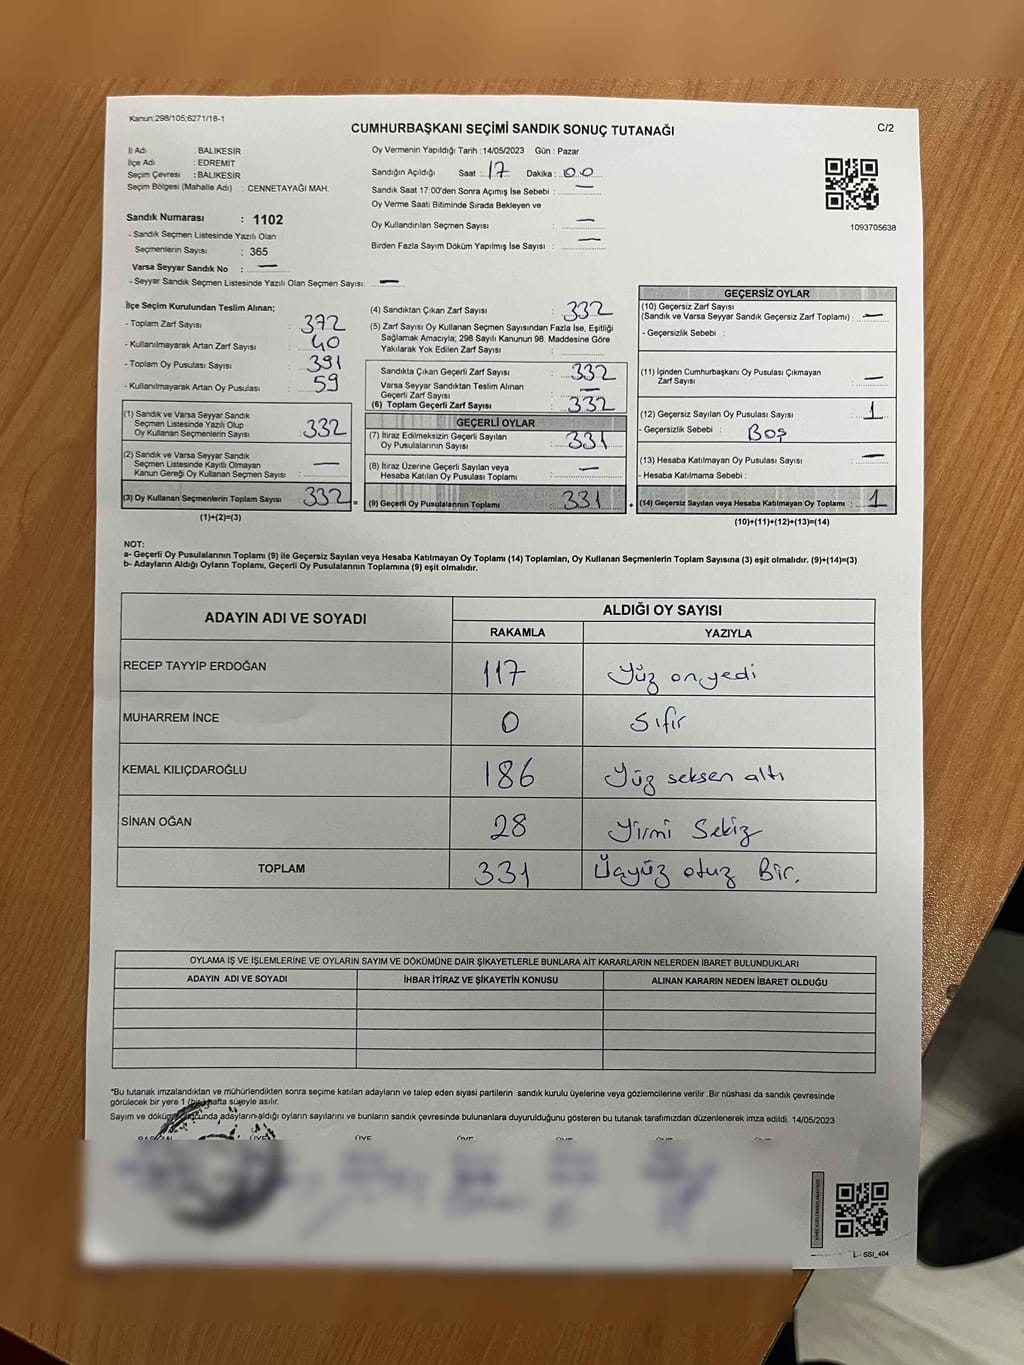 Kanun;298/105;6271/18-1
CUMHURBAŞKANI SEÇİMİ SANDIK SONUÇ TUTANAĞI
C/2
İl Adı : BALIKESİR
İlçe Adı : EDREMİT
Seçim Çevresi : BALIKESİR
Seçim Bölgesi (Mahalle Adı) : CENNETAYAĞI MAH.
Sandık Numarası : 1102
- Sandık Seçmen Listesinde Yazılı Olan
Seçmenlerin Sayısı : 365
Varsa Seyyar Sandık No : —
- Seyyar Sandık Seçmen Listesinde Yazılı Olan Seçmen Sayısı: —
Oy Vermenin Yapıldığı Tarih : 14/05/2023 Gün : Pazar
Sandığın Açıldığı Saat : 17 Dakika : 00
Sandık Saat 17:00'den Sonra Açımış İse Sebebi : —
Oy Verme Saati Bitiminde Sırada Bekleyen ve
Oy Kullandırılan Seçmen Sayısı : —
Birden Fazla Sayım Döküm Yapılmış İse Sayısı : —
1093705638
İlçe Seçim Kurulundan Teslim Alınan;
- Toplam Zarf Sayısı : 372
- Kullanılmayarak Artan Zarf Sayısı : 40
- Toplam Oy Pusulası Sayısı : 391
- Kullanılmayarak Artan Oy Pusulası : 59
(1) Sandık ve Varsa Seyyar Sandık
Seçmen Listesinde Yazılı Olup
Oy Kullanan Seçmenlerin Sayısı : 332
(2) Sandık ve Varsa Seyyar Sandık
Seçmen Listesinde Kayıtlı Olmayan
Kanun Gereği Oy Kullanan Seçmen Sayısı : —
(3) Oy Kullanan Seçmenlerin Toplam Sayısı : 332 =
(1)+(2)=(3)
(4) Sandıktan Çıkan Zarf Sayısı : 332
(5) Zarf Sayısı Oy Kullanan Seçmen Sayısından Fazla İse, Eşitliği
Sağlamak Amacıyla; 298 Sayılı Kanunun 98. Maddesine Göre
Yakılarak Yok Edilen Zarf Sayısı :
Sandıkta Çıkan Geçerli Zarf Sayısı : 332
Varsa Seyyar Sandıktan Teslim Alınan
Geçerli Zarf Sayısı : —
(6) Toplam Geçerli Zarf Sayısı : 332
GEÇERLİ OYLAR
(7) İtiraz Edilmeksizin Geçerli Sayılan
Oy Pusulalarının Sayısı : 331
(8) İtiraz Üzerine Geçerli Sayılan veya
Hesaba Katılan Oy Pusulası Toplamı : —
(9) Geçerli Oy Pusulalarının Toplamı : 331 +
GEÇERSİZ OYLAR
(10) Geçersiz Zarf Sayısı
(Sandık ve Varsa Seyyar Sandık Geçersiz Zarf Toplamı) : —
- Geçersizlik Sebebi :
(11) İçinden Cumhurbaşkanı Oy Pusulası Çıkmayan
Zarf Sayısı : —
(12) Geçersiz Sayılan Oy Pusulası Sayısı : 1
- Geçersizlik Sebebi : Boş
(13) Hesaba Katılmayan Oy Pusulası Sayısı : —
- Hesaba Katılmama Sebebi :
(14) Geçersiz Sayılan veya Hesaba Katılmayan Oy Toplamı : 1
(10)+(11)+(12)+(13)=(14)
NOT:
a- Geçerli Oy Pusulalarının Toplamı (9) ile Geçersiz Sayılan veya Hesaba Katılmayan Oy Toplamı (14) Toplamları, Oy Kullanan Seçmenlerin Toplam Sayısına (3) eşit olmalıdır. (9)+(14)=(3)
b- Adayların Aldığı Oyların Toplamı, Geçerli Oy Pusulalarının Toplamına (9) eşit olmalıdır.
ADAYIN ADI VE SOYADI
ALDIĞI OY SAYISI
RAKAMLA YAZIYLA
RECEP TAYYİP ERDOĞAN 117 Yüz onyedi
MUHARREM İNCE 0 Sıfır
KEMAL KILIÇDAROĞLU 186 Yüz seksen altı
SİNAN OĞAN 28 Yirmi Sekiz
TOPLAM 331 Üçyüz otuz Bir.
OYLAMA İŞ VE İŞLEMLERİNE VE OYLARIN SAYIM VE DÖKÜMÜNE DAİR ŞİKAYETLERLE BUNLARA AİT KARARLARIN NELERDEN İBARET BULUNDUKLARI
ADAYIN ADI VE SOYADI İHBAR İTİRAZ VE ŞİKAYETİN KONUSU ALINAN KARARIN NEDEN İBARET OLDUĞU
*Bu tutanak imzalandıktan ve mühürlendikten sonra seçime katılan adayların ve talep eden siyasi partilerin sandık kurulu üyelerine veya gözlemcilerine verilir .Bir nüshası da sandık çevresinde
görülecek bir yere 1 (bir) hafta süreyle asılır.
Sayım ve döküm sonucunda adayların aldığı oyların sayılarını ve bunların sandık çevresinde bulunanlara duyurulduğunu gösteren bu tutanak tarafımızdan düzenlenerek imza edildi. 14/05/2023
SSI_404